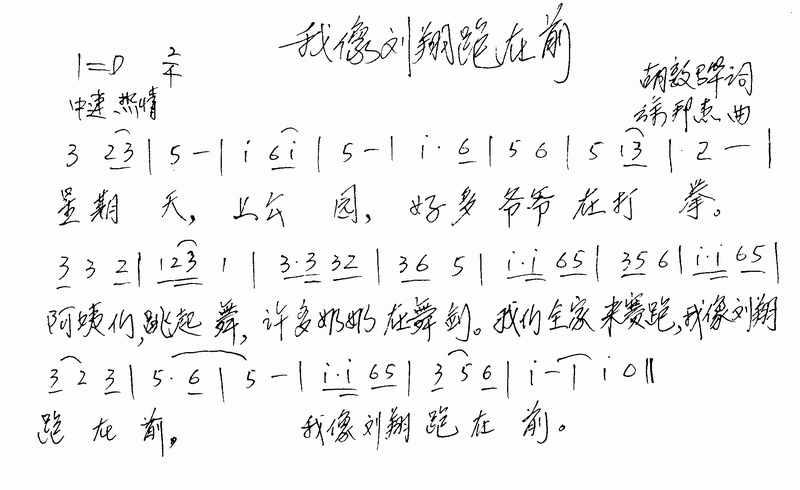 我像刘翔跑在前
1=D 2/4
中速 热情
胡敦骅词
邦杰曲
3 23 | 5 - | i 6i | 5 - | i· 6 | 5 6 | 5 i3 | 2 - |
星期天,上公园,好多爷爷在打拳。
3 3 2 | 123 1 | 3·3 32 | 36 5 | i·i 65 | 356 | i·i 65 |
阿姨们,跳起舞,许多奶奶在舞剑。我们全家来赛跑,我像刘翔
3 2 3 | 5· 6 | 5 - | i·i 65 | 3 5 6 | i - | i 0 ‖
跑在前。 我像刘翔跑在前。